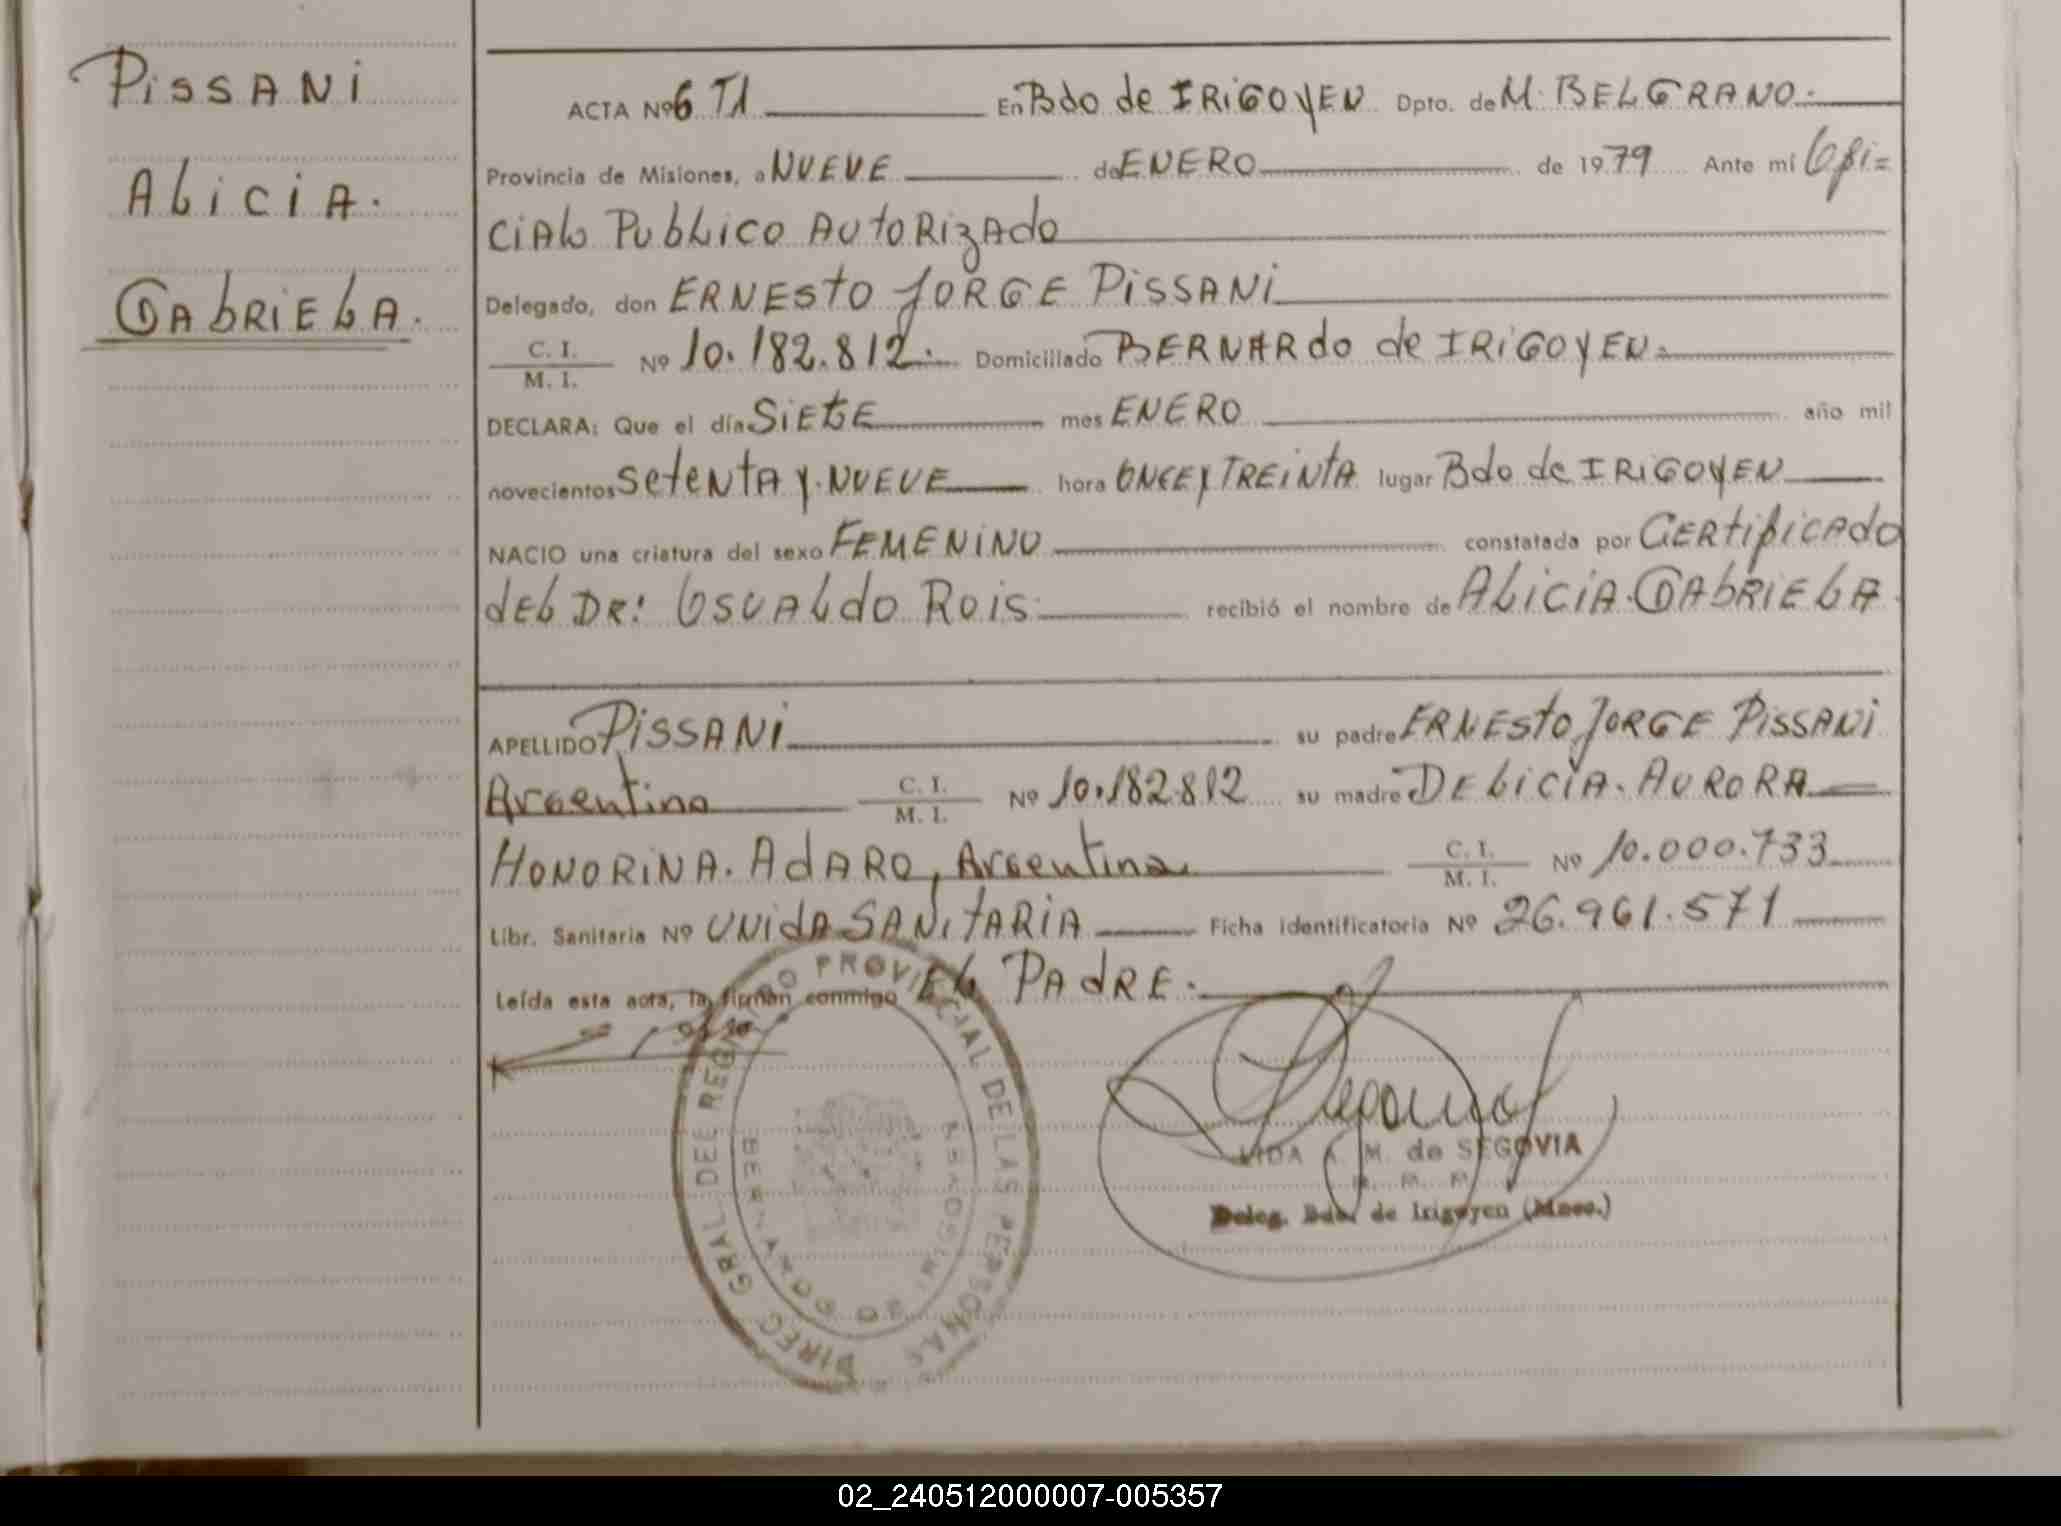 PISSANI
ALICIA.
GABRIELA.
ACTA Nº 6 T1 En Bdo de IRIGOYEN Dpto. de M. BELGRANO.
Provincia de Misiones, a NUEVE de ENERO de 1979 Ante mí Ofi=
cial Publico Autorizado
Delegado, don ERNESTO JORGE PISSANI
C. I.
M. I. Nº 10.182.812. Domiciliado BERNARDO de IRIGOYEN.
DECLARA: Que el día SIETE mes ENERO año mil
novecientos setenta y NUEVE hora ONCE y TREINTA lugar Bdo de IRIGOYEN
NACIO una criatura del sexo FEMENINO constatada por CERTIFICADO
del DR: OSVALDO ROIS. recibió el nombre de ALICIA. GABRIELA.
APELLIDO PISSANI su padre ERNESTO JORGE PISSANI
Argentino C. I.
M. I. Nº 10.182.812 su madre DELICIA. AURORA
HONORINA. ADARO, Argentina C. I.
M. I. Nº 10.000.733
Libr. Sanitaria Nº UNIDA SANITARIA Ficha identificatoria Nº 26.961.571
Leída esta acta, la firman conmigo EL PADRE.
DIREC. GRAL. DEL REGISTRO PROVINCIAL DE LAS PERSONAS
M. de SEGOVIA
Deleg. Bdo. de Irigoyen (Mnes.)
02_240512000007-005357